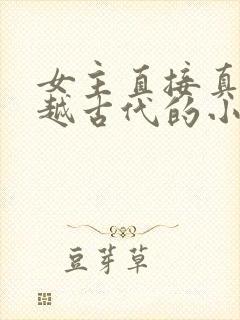 女主直接真
越古代的小
豆芽草